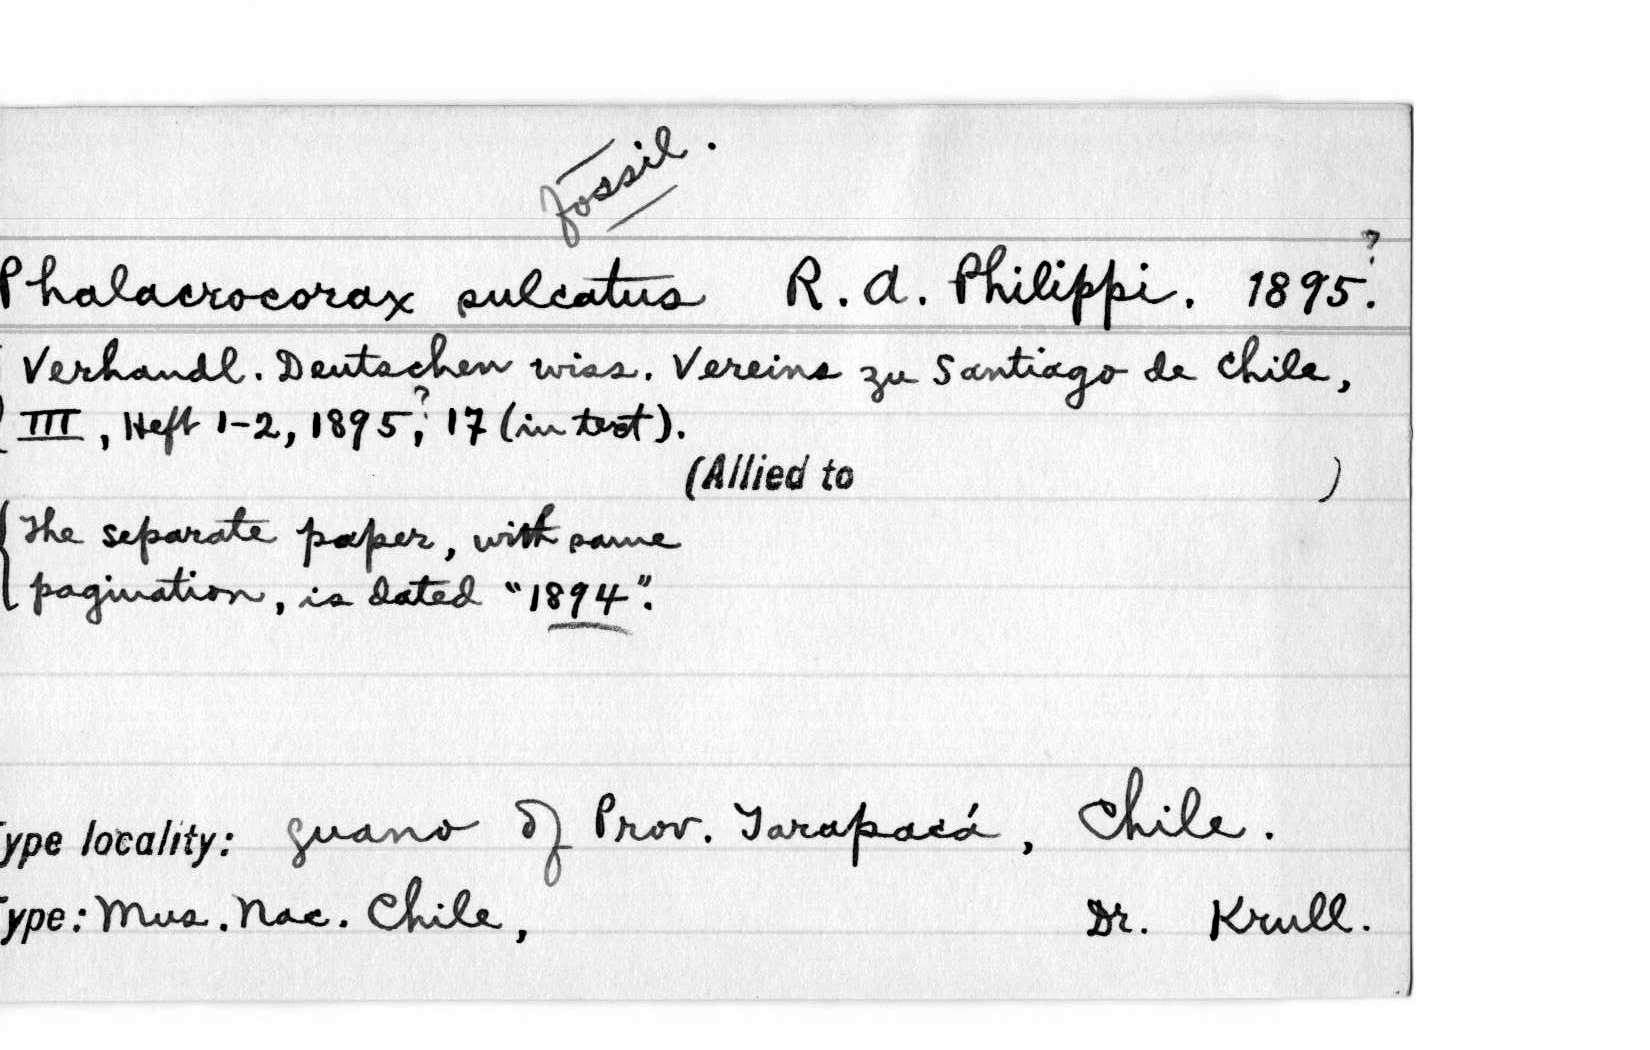 fossil.
Phalacrocorax sulcatus R. A. Philippi. 1895?.
Verhandl. Deutschen wiss. Vereins zu Santiago de Chile,
III, Heft 1-2, 1895?, 17 (in text).
(Allied to )
The separate paper, with same
pagination, is dated "1894".
Type locality: guano of Prov. Tarapacá, Chile.
Type: Mus. Nac. Chile, Dr. Krull.